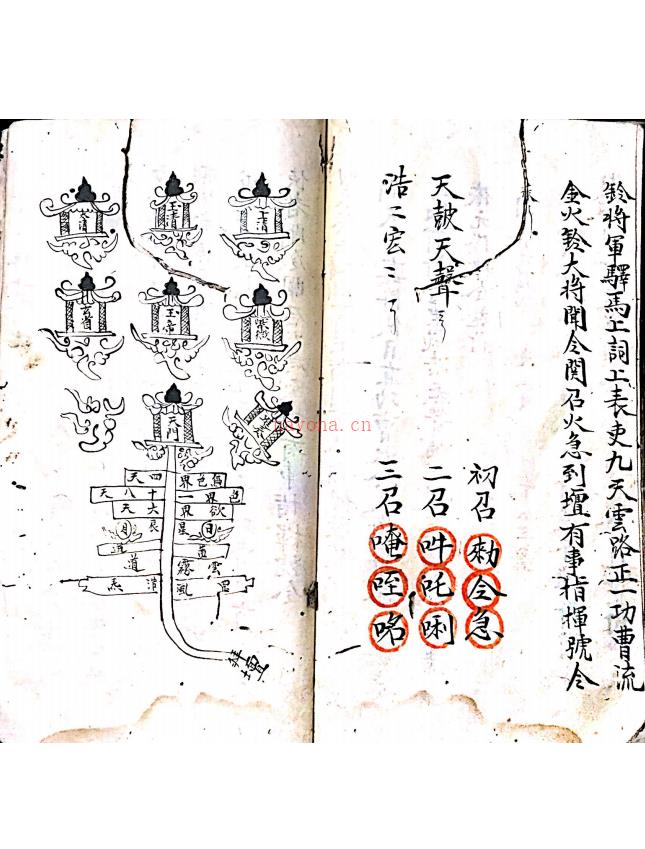 鈴將軍驛馬上詞上表吏九天雲路正一功曹流
金火鈴大將聞令関召火急到壇有事指揮號令
初召 勅令急
天皷天聲
二召 吽吒唎
浩二宏二
三召 唵咥咯
上清
玉清
太清
紫微
玉帝
玄省
天門
無色界四天
色界一十八天
欲界六天
日星辰月
雲露
道
道
罡風清炁
壇
hayona.cn